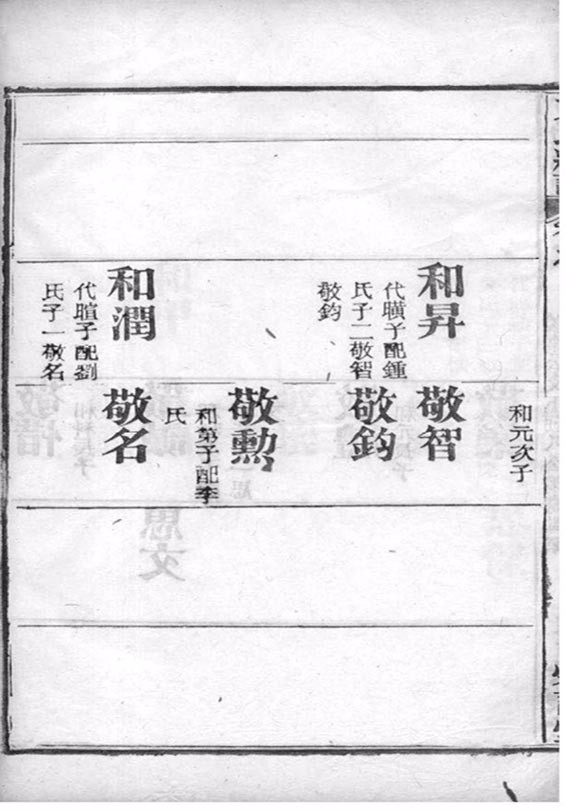 和昇
代曠子配鍾
氏子二敬智
敬鈞
和潤
代暄子配劉
氏子一敬名
和元次子
敬智
敬鈞
敬勳
和第子配李
氏
敬名